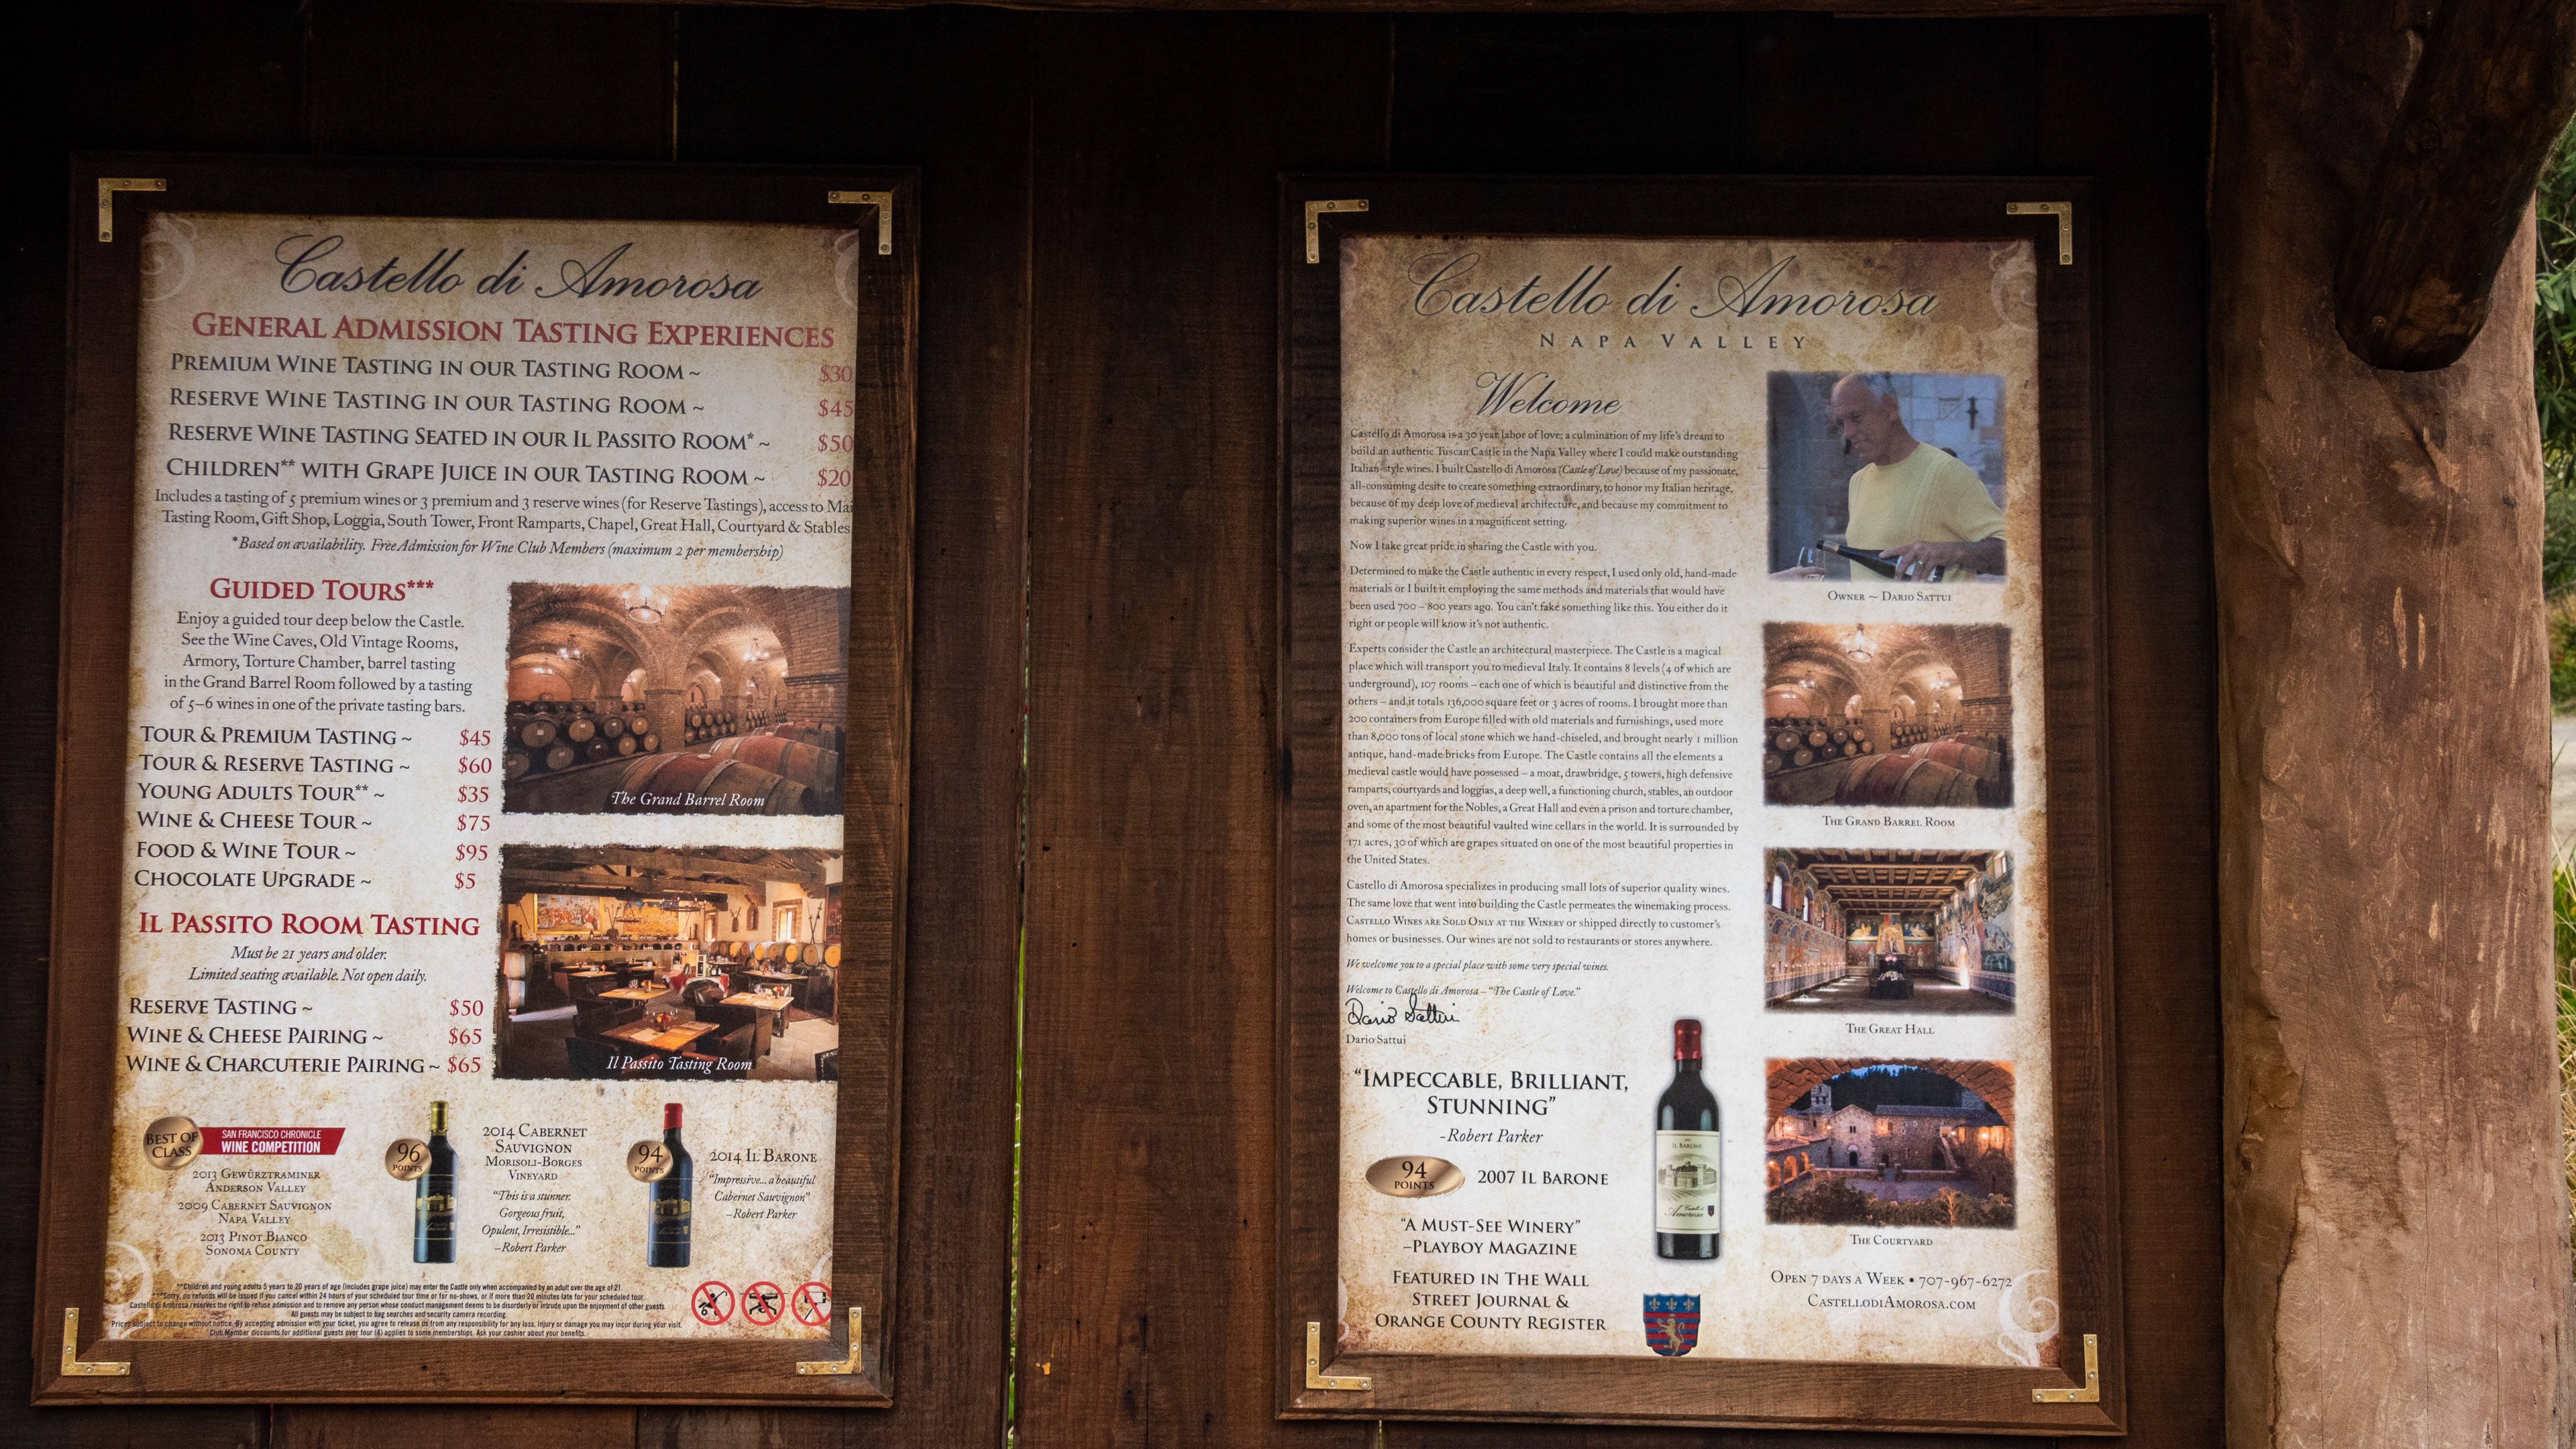 Castello di Amorosa
GENERAL ADMISSION TASTING EXPERIENCES
PREMIUM WINE TASTING IN OUR TASTING ROOM ~ $30
RESERVE WINE TASTING IN OUR TASTING ROOM ~ $45
RESERVE WINE TASTING SEATED IN OUR IL PASSITO ROOM* ~ $50
CHILDREN** WITH GRAPE JUICE IN OUR TASTING ROOM ~ $20
Includes a tasting of 5 premium wines or 3 premium and 3 reserve wines (for Reserve Tastings), access to Mai
Tasting Room, Gift Shop, Loggia, South Tower, Front Ramparts, Chapel, Great Hall, Courtyard & Stables
*Based on availability. Free Admission for Wine Club Members (maximum 2 per membership)
GUIDED TOURS***
Enjoy a guided tour deep below the Castle.
See the Wine Caves, Old Vintage Rooms,
Armory, Torture Chamber, barrel tasting
in the Grand Barrel Room followed by a tasting
of 5–6 wines in one of the private tasting bars.
TOUR & PREMIUM TASTING ~ $45
TOUR & RESERVE TASTING ~ $60
YOUNG ADULTS TOUR** ~ $35
WINE & CHEESE TOUR ~ $75
FOOD & WINE TOUR ~ $95
CHOCOLATE UPGRADE ~ $5
The Grand Barrel Room
IL PASSITO ROOM TASTING
Must be 21 years and older.
Limited seating available. Not open daily.
RESERVE TASTING ~ $50
WINE & CHEESE PAIRING ~ $65
WINE & CHARCUTERIE PAIRING ~ $65
Il Passito Tasting Room
BEST OF
CLASS
SAN FRANCISCO CHRONICLE
WINE COMPETITION
2013 GEWÜRZTRAMINER
ANDERSON VALLEY
2009 CABERNET SAUVIGNON
NAPA VALLEY
2013 PINOT BIANCO
SONOMA COUNTY
96
POINTS
2014 CABERNET
SAUVIGNON
MORISOLI-BORGES
VINEYARD
"This is a stunner.
Gorgeous fruit,
Opulent, Irresistible..."
–Robert Parker
94
POINTS
2014 IL BARONE
"Impressive... a beautiful
Cabernet Sauvignon"
–Robert Parker
**Children and young adults 5 years to 20 years of age (includes grape juice) may enter the Castle only when accompanied by an adult over the age of 21.
***Sorry, no refunds will be issued if you cancel within 24 hours of your scheduled tour time or for no-shows, or if more than 20 minutes late for your scheduled tour.
Castello di Amorosa reserves the right to refuse admission and to remove any person whose conduct management deems to be disorderly or intrude upon the enjoyment of other guests.
All guests may be subject to bag searches and security camera recording.
Prices subject to change without notice. By accepting admission with your ticket, you agree to release us from any responsibility for any loss, injury or damage you may incur during your visit.
Club Member discounts for additional guests over four (4) applies to some memberships. Ask your cashier about your benefits.
Castello di Amorosa
NAPA VALLEY
Welcome
Castello di Amorosa is a 30 year labor of love; a culmination of my life's dream to
build an authentic Tuscan Castle in the Napa Valley where I could make outstanding
Italian-style wines. I built Castello di Amorosa (Castle of Love) because of my passionate,
all-consuming desire to create something extraordinary, to honor my Italian heritage,
because of my deep love of medieval architecture, and because my commitment to
making superior wines in a magnificent setting.
Now I take great pride in sharing the Castle with you.
Determined to make the Castle authentic in every respect, I used only old, hand-made
materials or I built it employing the same methods and materials that would have
been used 700 – 800 years ago. You can't fake something like this. You either do it
right or people will know it's not authentic.
Experts consider the Castle an architectural masterpiece. The Castle is a magical
place which will transport you to medieval Italy. It contains 8 levels (4 of which are
underground), 107 rooms – each one of which is beautiful and distinctive from the
others – and it totals 136,000 square feet or 3 acres of rooms. I brought more than
200 containers from Europe filled with old materials and furnishings, used more
than 8,000 tons of local stone which we hand-chiseled, and brought nearly 1 million
antique, hand-made bricks from Europe. The Castle contains all the elements a
medieval castle would have possessed – a moat, drawbridge, 5 towers, high defensive
ramparts, courtyards and loggias, a deep well, a functioning church, stables, an outdoor
oven, an apartment for the Nobles, a Great Hall and even a prison and torture chamber,
and some of the most beautiful vaulted wine cellars in the world. It is surrounded by
171 acres, 30 of which are grapes situated on one of the most beautiful properties in
the United States.
Castello di Amorosa specializes in producing small lots of superior quality wines.
The same love that went into building the Castle permeates the winemaking process.
CASTELLO WINES ARE SOLD ONLY AT THE WINERY or shipped directly to customer's
homes or businesses. Our wines are not sold to restaurants or stores anywhere.
We welcome you to a special place with some very special wines.
Welcome to Castello di Amorosa – "The Castle of Love."
Dario Sattui
Dario Sattui
"IMPECCABLE, BRILLIANT,
STUNNING"
-Robert Parker
94
POINTS
2007 IL BARONE
"A MUST-SEE WINERY"
–PLAYBOY MAGAZINE
FEATURED IN THE WALL
STREET JOURNAL &
ORANGE COUNTY REGISTER
IL BARONE
Amorosa
OWNER ~ DARIO SATTUI
THE GRAND BARREL ROOM
THE GREAT HALL
THE COURTYARD
OPEN 7 DAYS A WEEK • 707-967-6272
CASTELLODIAMOROSA.COM